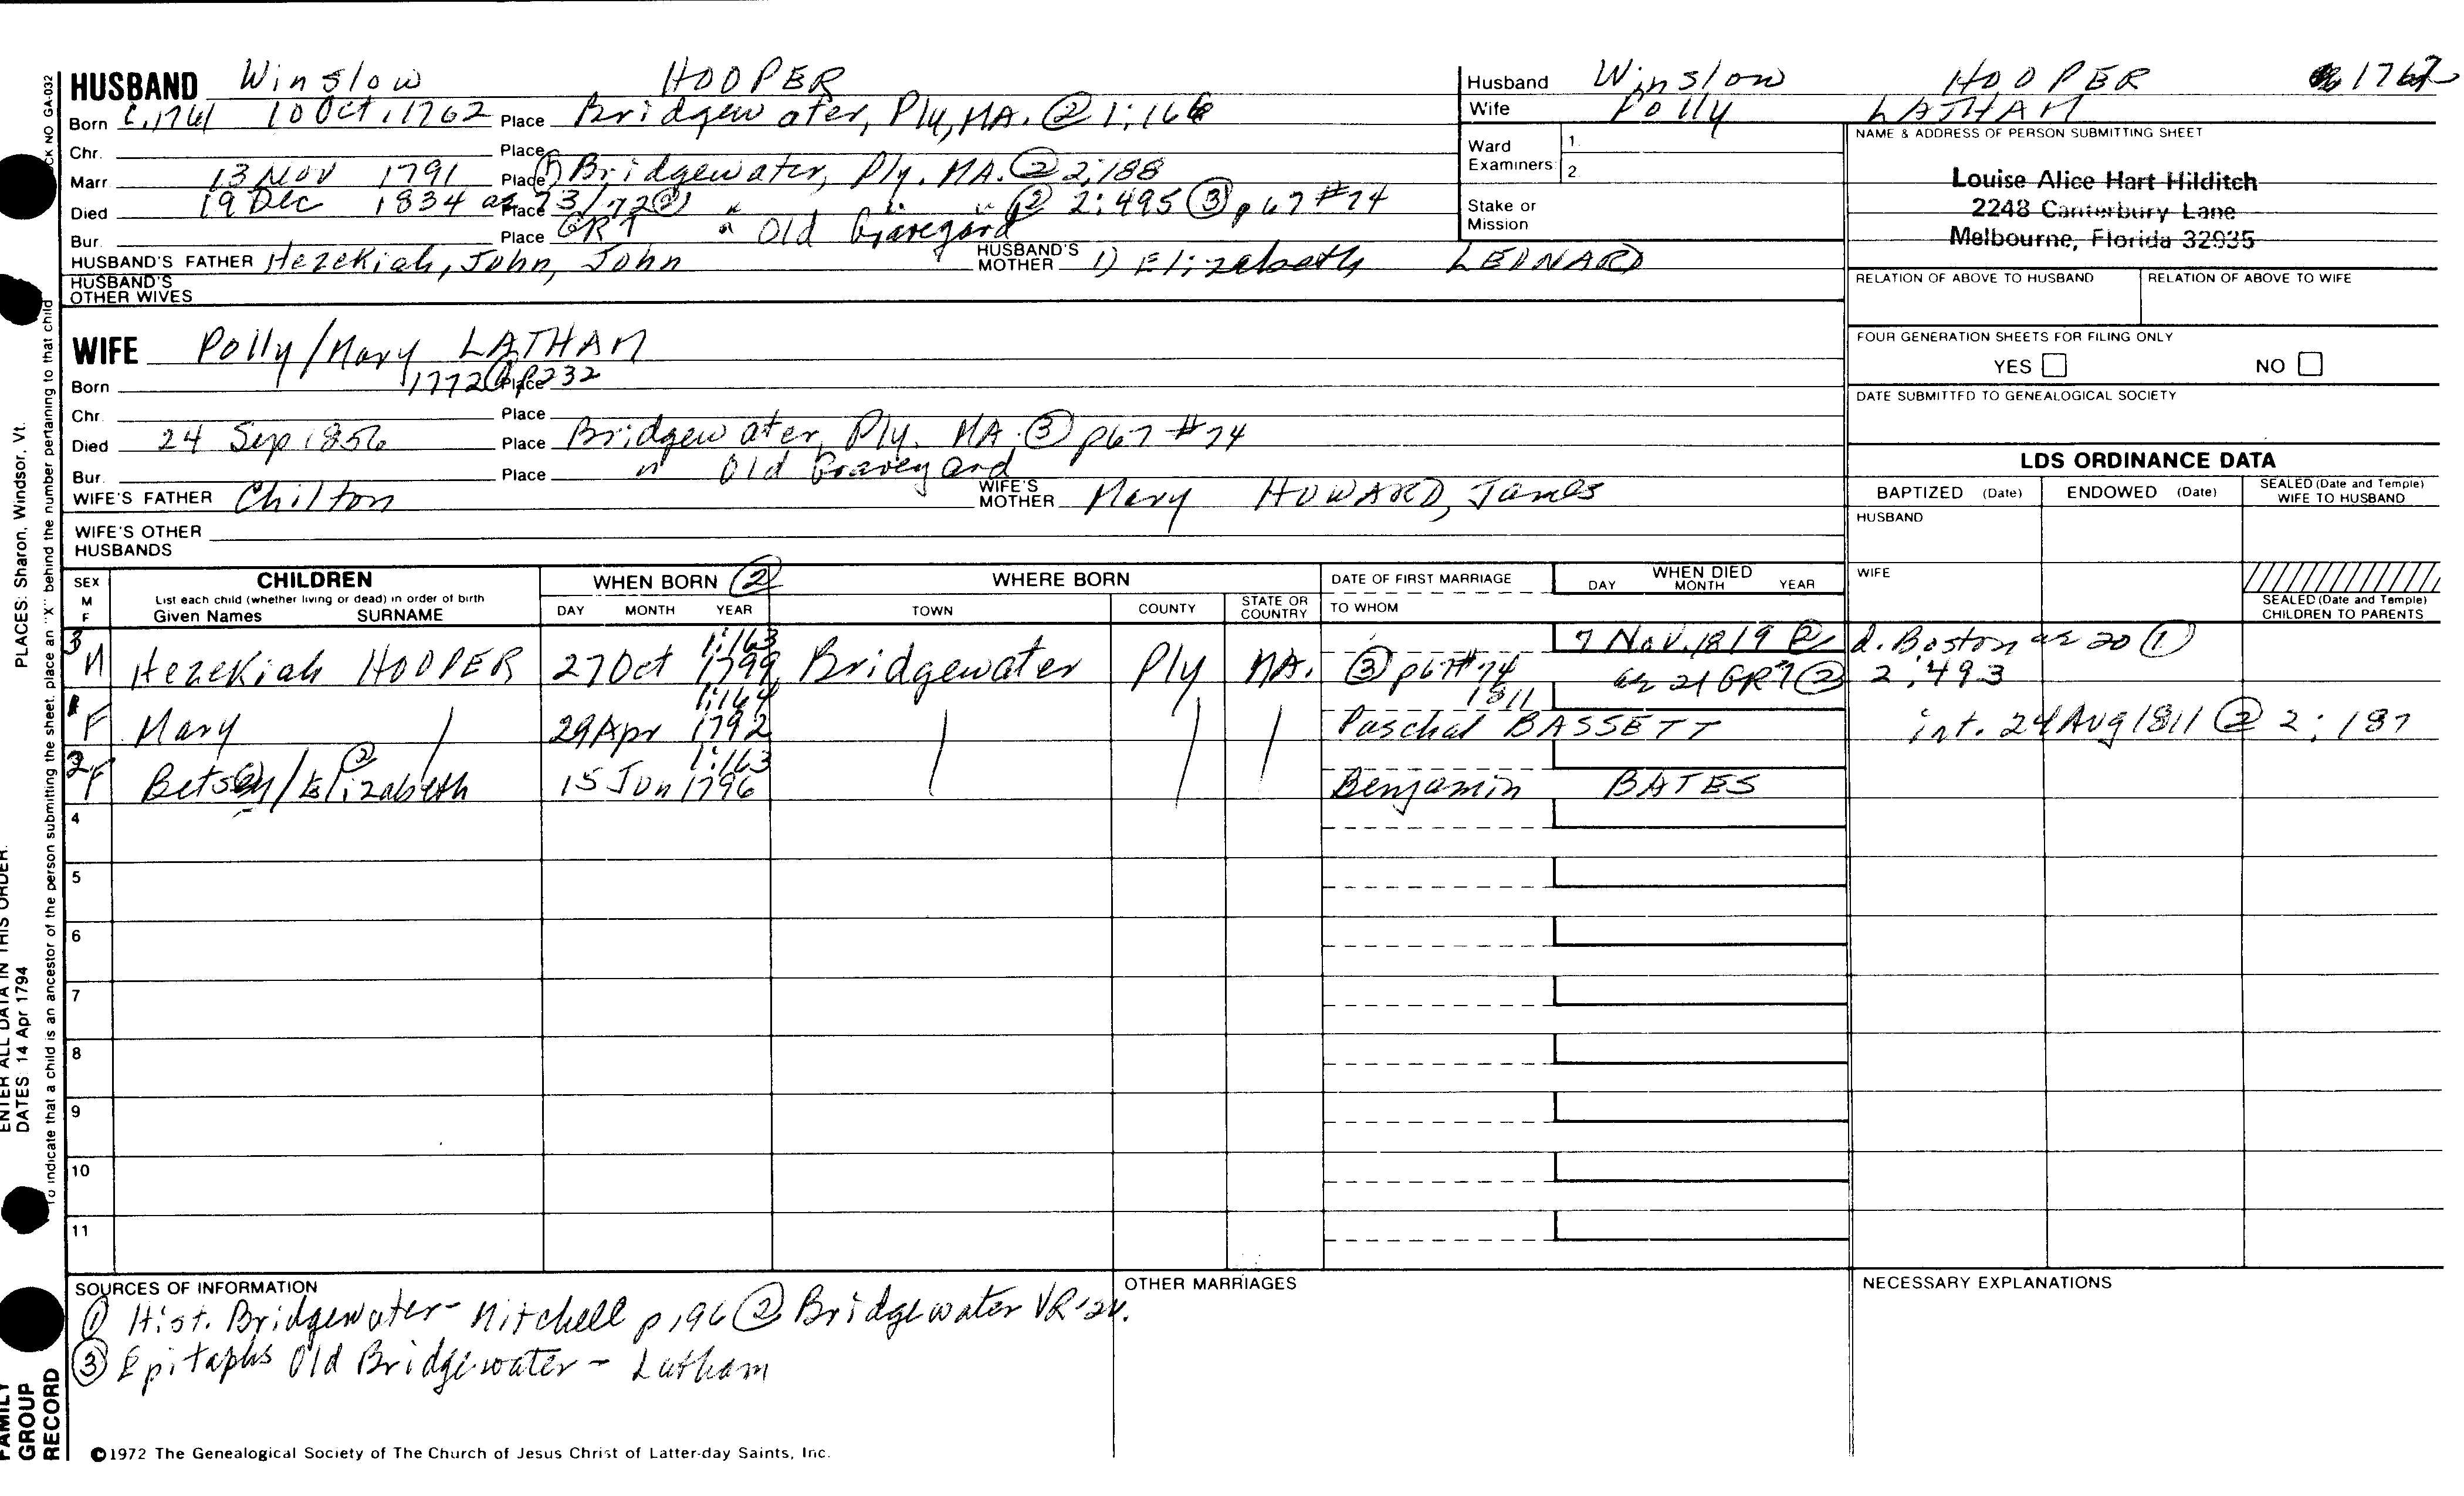 HUSBAND Winslow HOOPER
Born c.1761 10 Oct. 1762 Place Bridgewater, Ply, MA. ② 1:166
Chr. Place
Marr. 13 Nov 1791 Place Bridgewater, Ply. MA. ② 2:188
Died 19 Dec 1834 ae 73/72② Place " " " ② 2:495 ③ p67 #74
Bur. Place GR7 " Old Graveyard
HUSBAND'S FATHER Hezekiah, John, John HUSBAND'S MOTHER 1) Elizabeth LEONARD
HUSBAND'S OTHER WIVES
Husband Winslow HOOPER 1762
Wife Polly LATHAM
Ward Examiners: 1. 2
Stake or Mission
NAME & ADDRESS OF PERSON SUBMITTING SHEET
Louise Alice Hart Hilditch
2248 Canterbury Lane
Melbourne, Florida 32935
RELATION OF ABOVE TO HUSBAND RELATION OF ABOVE TO WIFE
FOUR GENERATION SHEETS FOR FILING ONLY
YES NO
DATE SUBMITTED TO GENEALOGICAL SOCIETY
WIFE Polly/Mary LATHAM
Born 1772 ① p232 Place
Chr. Place
Died 24 Sep 1856 Place Bridgewater, Ply. MA. ③ p67 #74
Bur. Place " Old Graveyard
WIFE'S FATHER Chilton WIFE'S MOTHER Mary HOWARD, James
WIFE'S OTHER HUSBANDS
LDS ORDINANCE DATA
BAPTIZED (Date) ENDOWED (Date) SEALED (Date and Temple) WIFE TO HUSBAND
HUSBAND
WIFE
SEALED (Date and Temple) CHILDREN TO PARENTS
SEX M F CHILDREN WHEN BORN ② WHERE BORN DATE OF FIRST MARRIAGE WHEN DIED
List each child (whether living or dead) in order of birth
Given Names SURNAME DAY MONTH YEAR TOWN COUNTY STATE OR COUNTRY TO WHOM DAY MONTH YEAR
3 1:163 7 Nov. 1819 ② d. Boston ae 20 ①
M Hezekiah HOOPER 27 Oct 1799 Bridgewater Ply MA. ③ p67 #74 ae 21 GR7 ② 2:493
1 1:164 1811
F Mary 29 Apr 1792 Paschal BASSETT int. 24 Aug 1811 ② 2:187
2 ② 1:163
F Betsey/Elizabeth 15 Jun 1796 Benjamin BATES
4
5
6
7
8
9
10
11
SOURCES OF INFORMATION
① Hist. Bridgewater - Mitchell p196 ② Bridgewater VR-2v.
③ Epitaphs Old Bridgewater - Latham
OTHER MARRIAGES
NECESSARY EXPLANATIONS
©1972 The Genealogical Society of The Church of Jesus Christ of Latter-day Saints, Inc.
NO GA-032
To indicate that a child is an ancestor of the person submitting the sheet, place an "X" behind the number pertaining to that child
PLACES: Sharon, Windsor, Vt.
ENTER ALL DATA IN THIS ORDER:
DATES: 14 Apr 1794
FAMILY
GROUP
RECORD